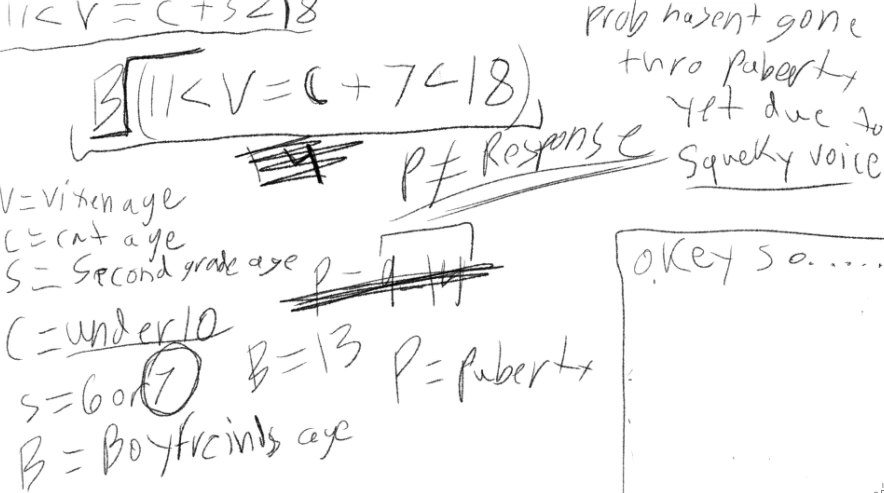 11< V = C + S < 18
B (11< V = C + 7 < 18)
4
P ≠ Response
prob hasent gone
thro Puberty
yet due to
Squeky voice
V = vixen age
C = cat age
S = Second grade age
P = 9-14
C = under 10
S = 6 or 7
B = 13
P = puberty
B = Boyfreinds age
okey so.....